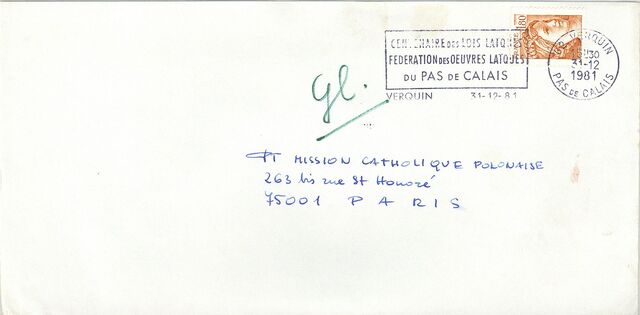 1,80
CENTENAIRE DES LOIS LAIQUES
FEDERATION DES OEUVRES LAIQUES
DU PAS DE CALAIS
VERQUIN 31-12-81
62 VERQUIN
31-12
1981
PAS DE CALAIS
gl.
PT MISSION CATHOLIQUE POLONAISE
263 bis rue St Honoré
75001 PARIS